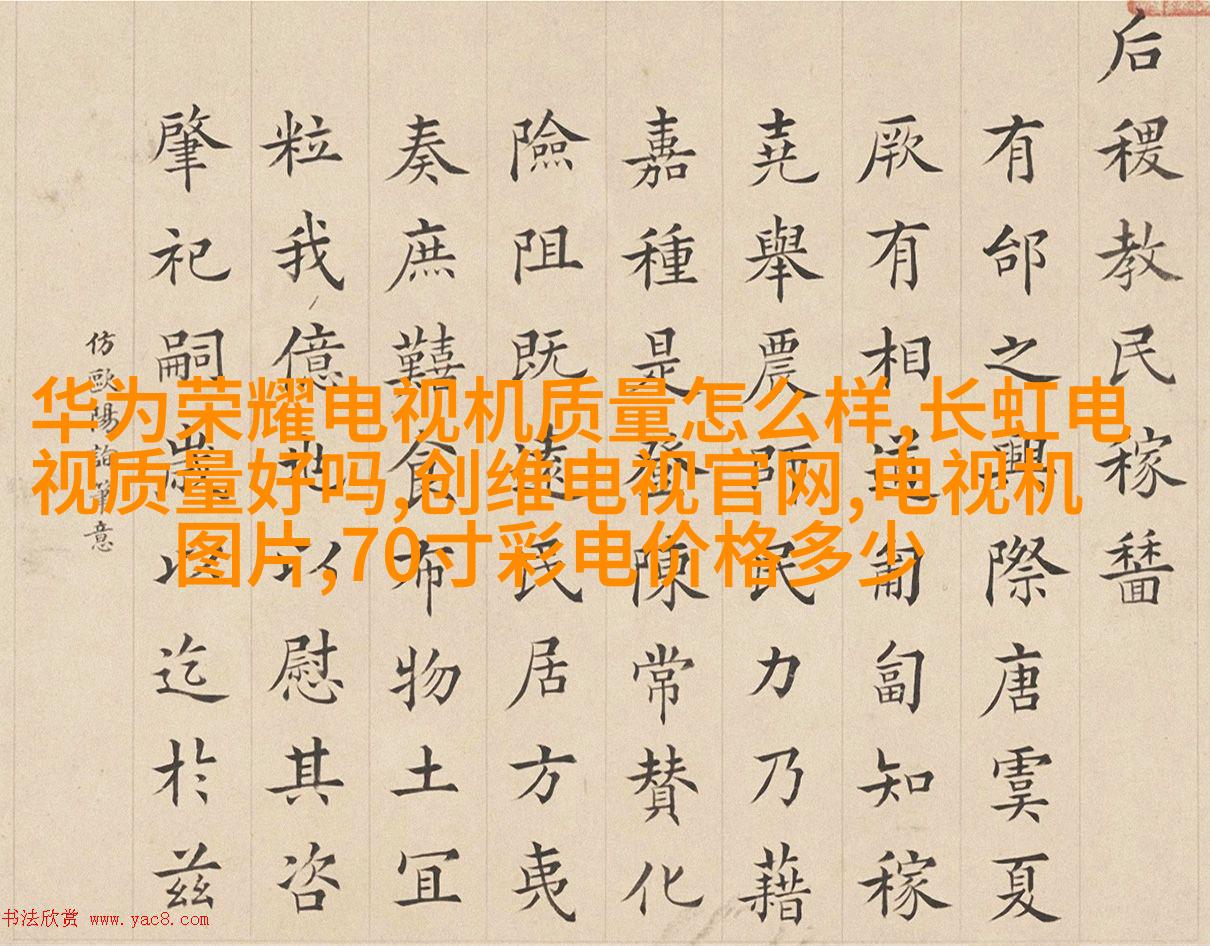 后稷教民稼穡
有邰之興際唐虞夏
厥有相道匍匐知稼
堯舉農師民力乃藉
嘉種是陳常賛化
險阻既遠民居方夷
奏庶囏食布物土冝
粒我億也以慰其咨
肇祀嗣歲以迄於兹
仿歐陽詢筆意
华为荣耀电视机质量怎么样,长虹电
视质量好吗,创维电视官网,电视机
图片,70寸彩电价格多少
书法欣赏 www.yac8.com